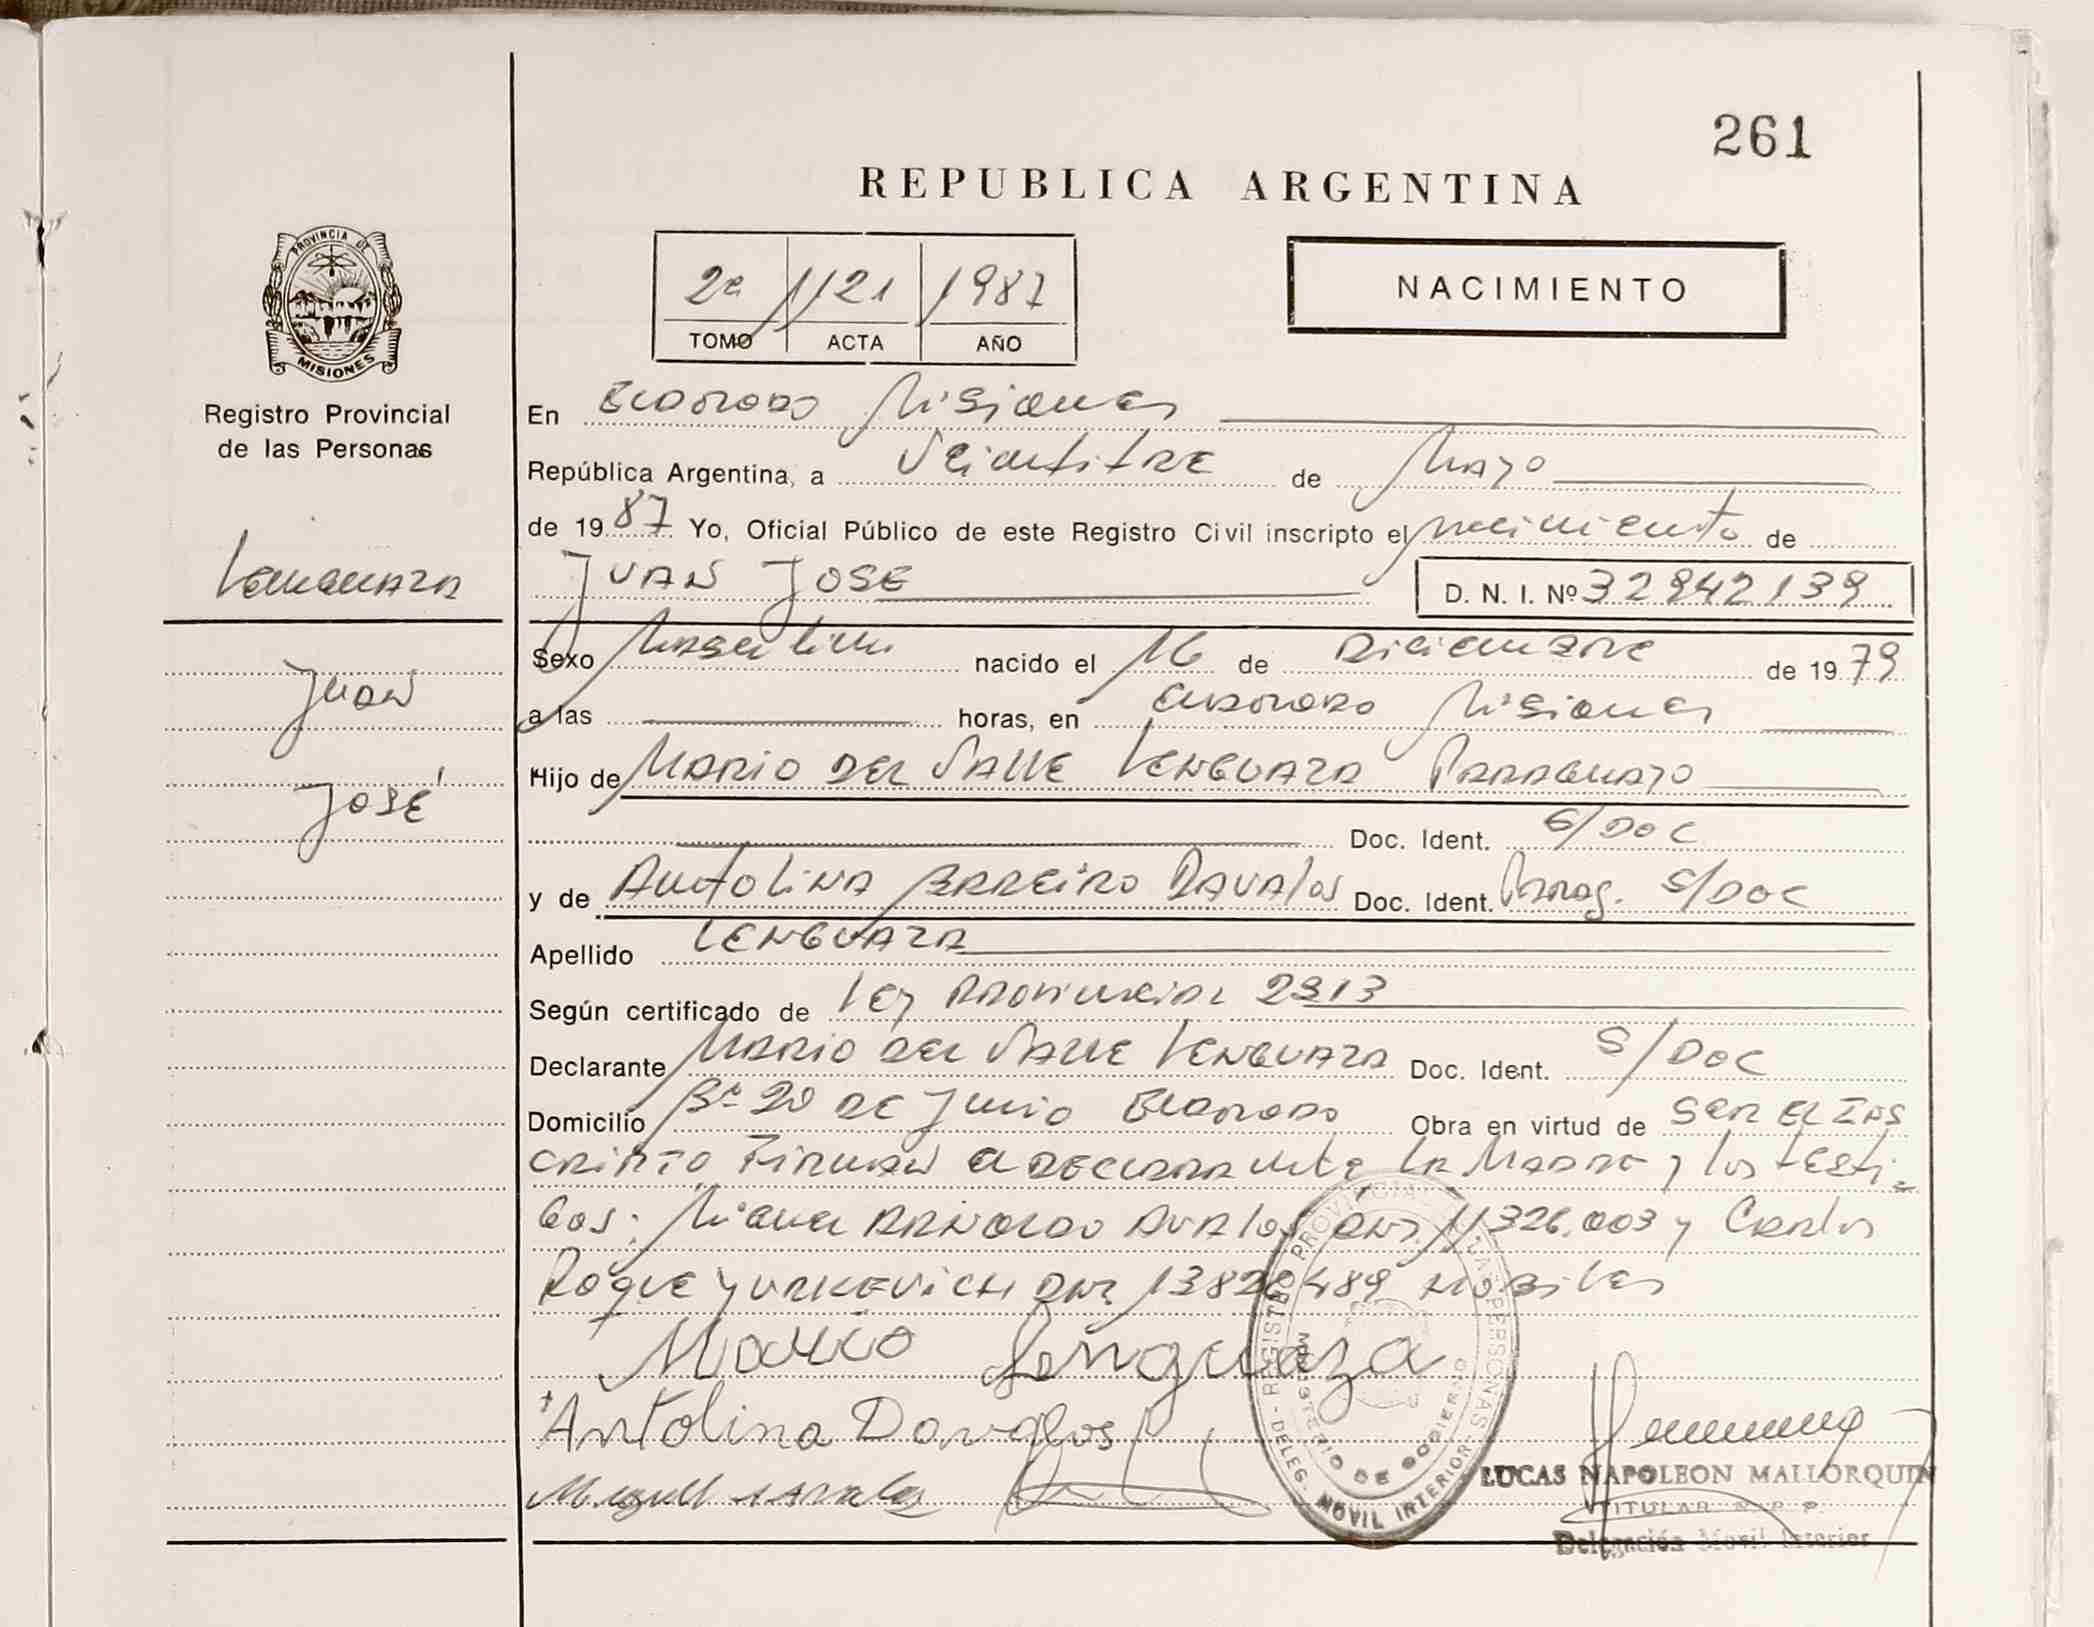 261
REPUBLICA ARGENTINA
PROVINCIA DE
MISIONES
Registro Provincial
de las Personas
2a 1121 1987
TOMO ACTA AÑO
NACIMIENTO
Lenguaza
Juan
José
En Eldorado Misiones
República Argentina, a Veintitre de Mayo
de 1987 Yo, Oficial Público de este Registro Civil inscripto el nacimiento de
JUAN JOSE D. N. I. Nº 32942139
Sexo Masculino nacido el 16 de Diciembre de 1979
a las horas, en Eldorado Misiones
Hijo de MARIO DEL VALLE LENGUAZA PARAGUAYO
Doc. Ident. S/DOC
y de Antolina BARREIRO DAVALOS Doc. Ident. Parag. S/DOC
Apellido LENGUAZA
Según certificado de Ley Provincial 2913
Declarante MARIO DEL VALLE LENGUAZA Doc. Ident. S/DOC
Domicilio Bº 20 DE Junio Eldorado Obra en virtud de SER EL INS
CRIPTO Firman el DECLARANTE LA MADRE y los testi=
gos: Miguel ARNOLDO AVALOS DNI 11326.003 y Carlos
Roque YURKEVICH DNI 13826489 Habiles
Mario Lenguaza
Antolina Davalos
Miguel Avalos
REGISTRO PROVINCIAL DE LAS PERSONAS - DELEG. MOVIL INTERIOR -
MINISTERIO DE GOBIERNO
LUCAS NAPOLEON MALLORQUIN
TITULAR R. P. P.
Delegación Movil Interior